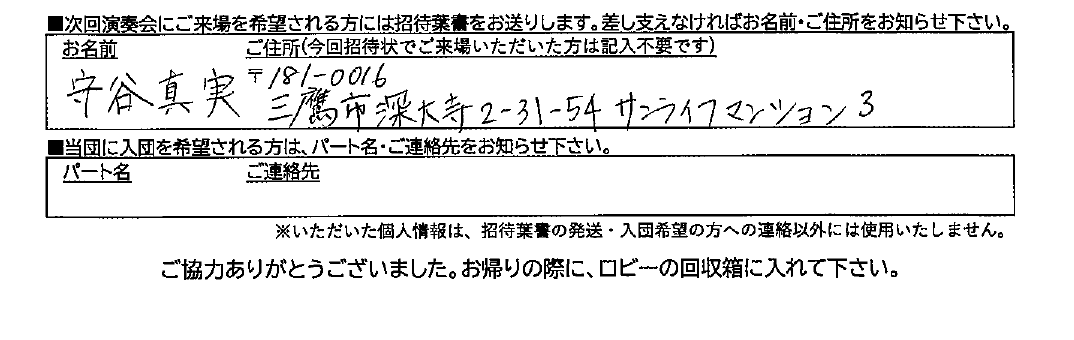 ■次回演奏会にご来場を希望される方には招待葉書をお送りします。差し支えなければお名前・ご住所をお知らせ下さい。
お名前 ご住所(今回招待状でご来場いただいた方は記入不要です)
守谷真実 〒181-0016
三鷹市深大寺2-31-54 サンライフマンション3
■当団に入団を希望される方は、パート名・ご連絡先をお知らせ下さい。
パート名 ご連絡先
※いただいた個人情報は、招待葉書の発送・入団希望の方への連絡以外には使用いたしません。
ご協力ありがとうございました。お帰りの際に、ロビーの回収箱に入れて下さい。